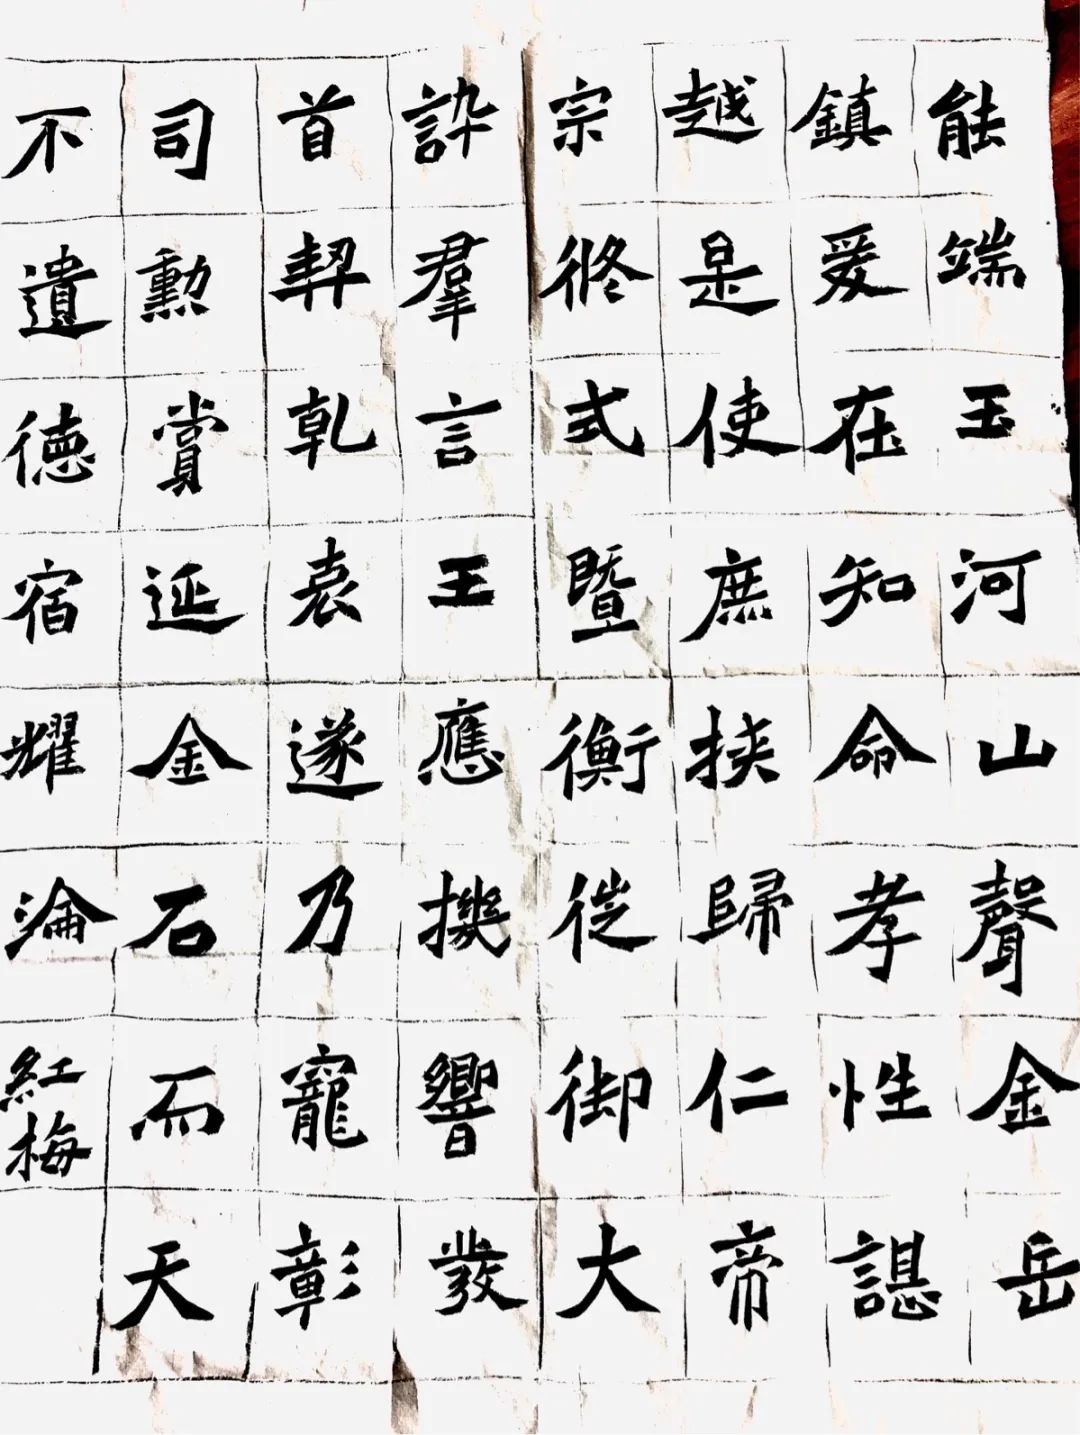 能端玉河山聲金岳
鎮爰在知命孝性諶
越是使庶挾歸仁帝
宗式暨衡従御大
羣言王應機響發
首契乾袁遂乃寵彰
司勲賞延金石而天
不遺德宿耀淪紅梅